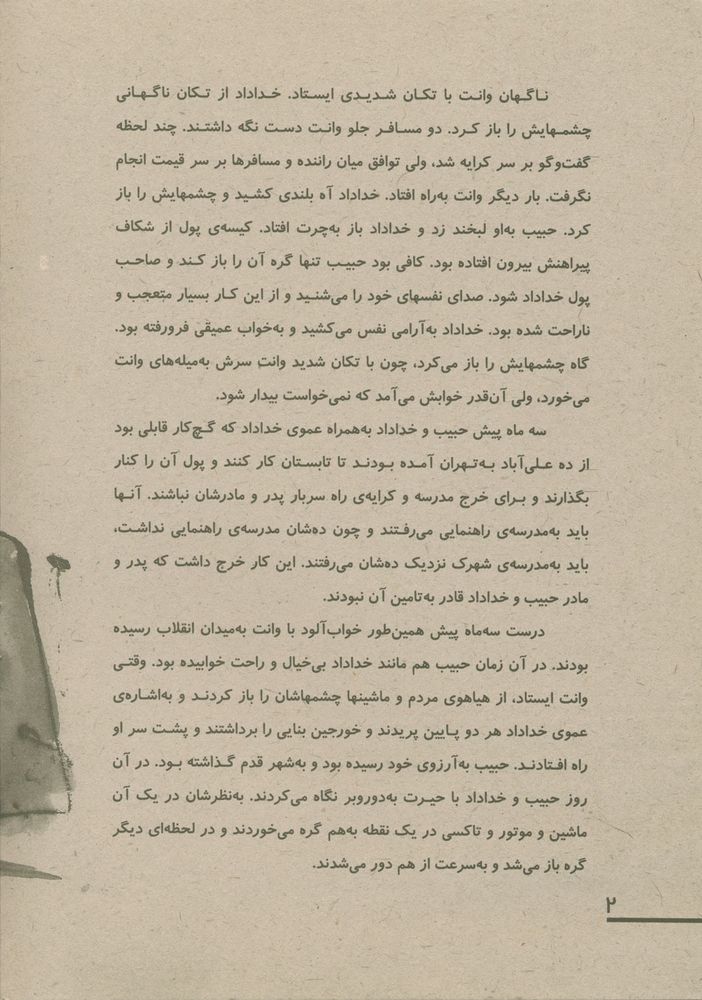 ناگهان وانت با تکان شدیدی ایستاد. خداداد از تکان ناگهانی
چشمهایش را باز کرد. دو مسافر جلو وانت دست نگه داشتند. چند لحظه
گفت‌وگو بر سر کرایه شد، ولی توافق میان راننده و مسافرها بر سر قیمت انجام
نگرفت. بار دیگر وانت به‌راه افتاد. خداداد آه بلندی کشید و چشمهایش را باز
کرد. حبیب به‌او لبخند زد و خداداد باز به‌چرت افتاد. کیسه‌ی پول از شکاف
پیراهنش بیرون افتاده بود. کافی بود حبیب تنها گره آن را باز کند و صاحب
پول خداداد شود. صدای نفسهای خود را می‌شنید و از این کار بسیار متعجب و
ناراحت شده بود. خداداد به‌آرامی نفس می‌کشید و به‌خواب عمیقی فرورفته بود.
گاه چشمهایش را باز می‌کرد، چون با تکان شدید وانت سرش به‌میله‌های وانت
می‌خورد، ولی آن‌قدر خوابش می‌آمد که نمی‌خواست بیدار شود.
سه ماه پیش حبیب و خداداد به‌همراه عموی خداداد که گچ‌کار قابلی بود
از ده علی‌آباد به‌تهران آمده بودند تا تابستان کار کنند و پول آن را کنار
بگذارند و برای خرج مدرسه و کرایه‌ی راه سربار پدر و مادرشان نباشند. آنها
باید به‌مدرسه‌ی راهنمایی می‌رفتند و چون ده‌شان مدرسه‌ی راهنمایی نداشت،
باید به‌مدرسه‌ی شهرک نزدیک ده‌شان می‌رفتند. این کار خرج داشت که پدر و
مادر حبیب و خداداد قادر به‌تامین آن نبودند.
درست سه‌ماه پیش همین‌طور خواب‌آلود با وانت به‌میدان انقلاب رسیده
بودند. در آن زمان حبیب هم مانند خداداد بی‌خیال و راحت خوابیده بود. وقتی
وانت ایستاد، از هیاهوی مردم و ماشینها چشمهاشان را باز کردند و به‌اشاره‌ی
عموی خداداد هر دو پایین پریدند و خورجین بنایی را برداشتند و پشت سر او
راه افتادند. حبیب به‌آرزوی خود رسیده بود و به‌شهر قدم گذاشته بود. در آن
روز حبیب و خداداد با حیرت به‌دوروبر نگاه می‌کردند. به‌نظرشان در یک آن
ماشین و موتور و تاکسی در یک نقطه به‌هم گره می‌خوردند و در لحظه‌ای دیگر
گره باز می‌شد و به‌سرعت از هم دور می‌شدند.
۲